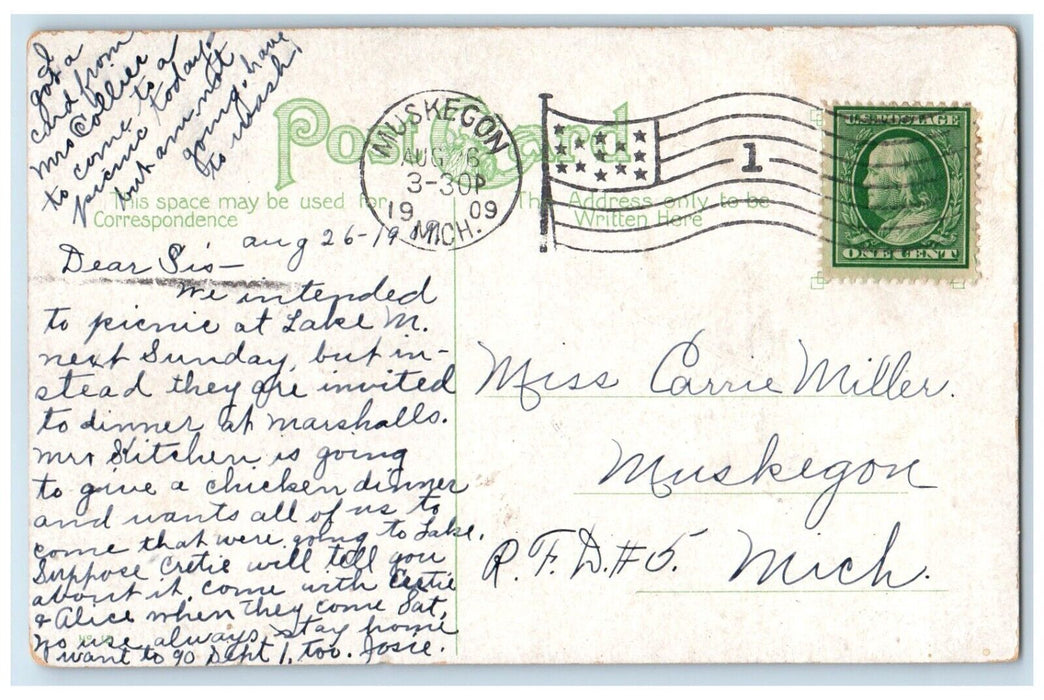 I
got a
card from
Mrs Collier
to come to a
picnic today
but am not
going, have
to wash!
Post Card
MUSKEGON
AUG 6
3-30P
19 09
MICH.
1
U.S. POSTAGE
ONE CENT
This space may be used for
Correspondence
The Address only to be
Written Here
Aug 26-1909
Dear Sis—
We intended
to picnic at Lake M.
next Sunday, but in-
stead they are invited
to dinner at Marshalls.
Mrs Kitchen is going
to give a chicken dinner
and wants all of us to
come that were going to Lake.
Suppose Cretie will tell you
about it. come with Cretie
& Alice when they come Sat,
No use always stay home
I want to go Dept 1, too. Josie.
Miss Carrie Miller.
Muskegon
R.F.D.#5. Mich.